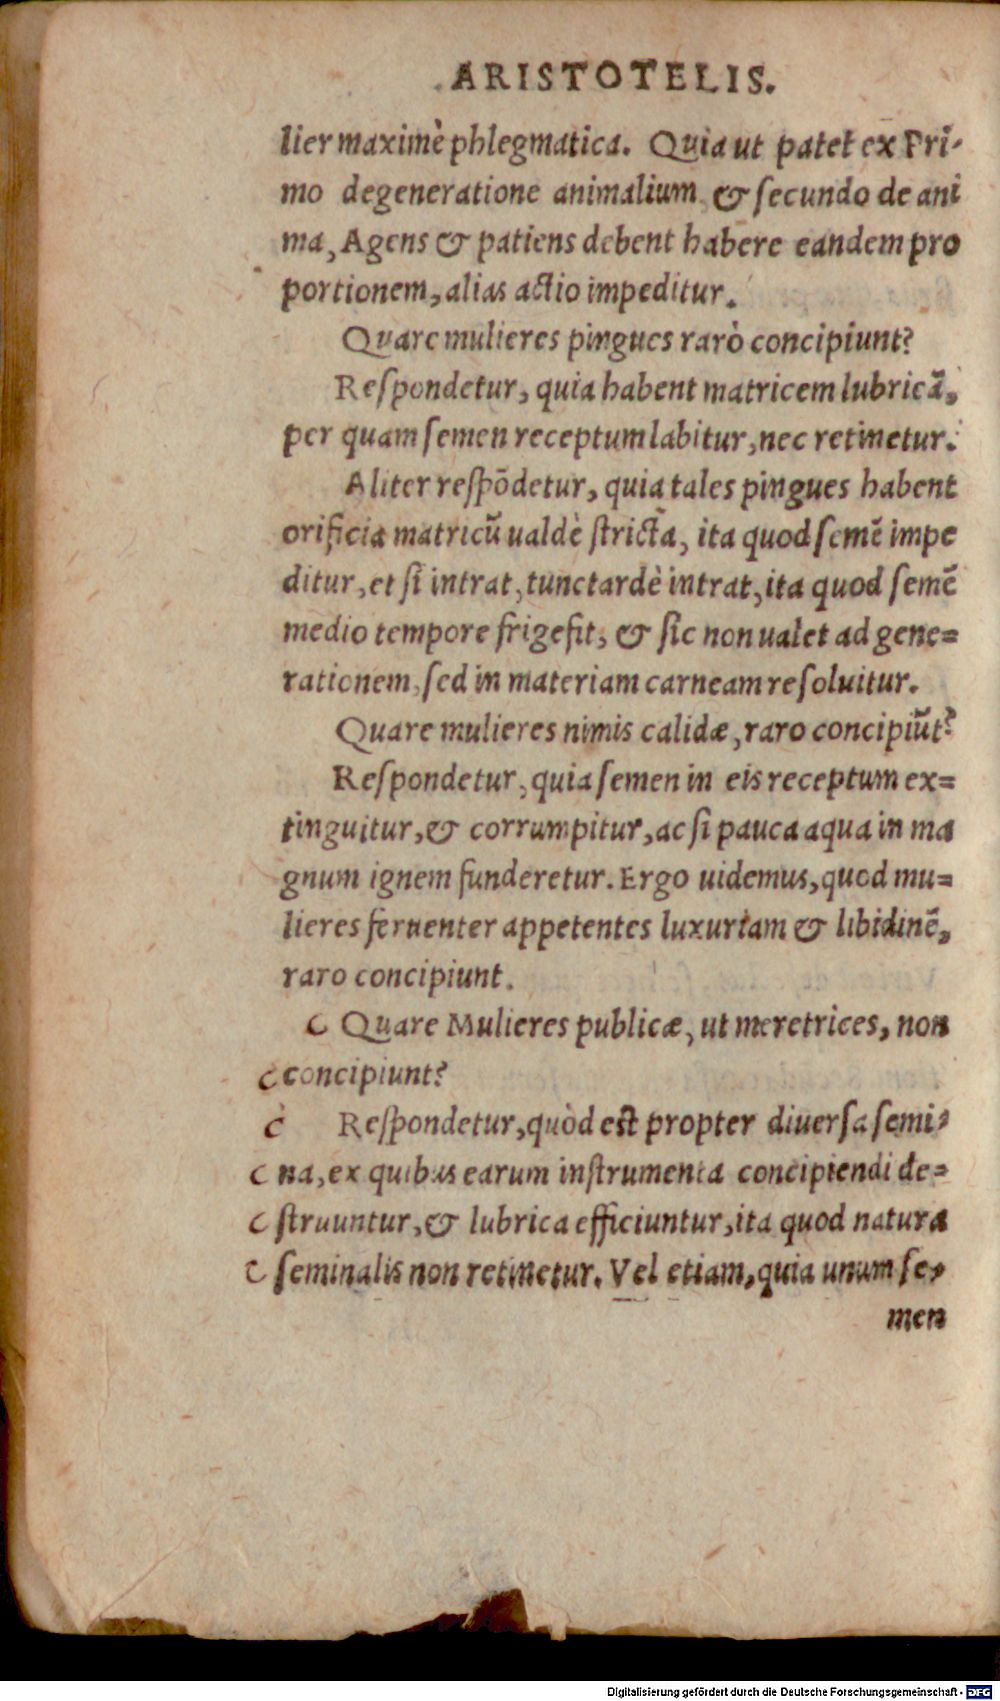 ARISTOTELIS.
lier maximè phlegmatica. Quia ut patet ex Pri-
mo degeneratione animalium & secundo de ani
ma, Agens & patiens debent habere eandem pro
portionem, alias actio impeditur.
Quare mulieres pingues rarò concipiunt?
Respondetur, quia habent matricem lubricā,
per quam semen receptum labitur, nec retinetur.
Aliter respōdetur, quia tales pingues habent
orificia matricū ualdè stricta, ita quod semē impe
ditur, et si intrat, tunc tardè intrat, ita quod semē
medio tempore frigefit, & sic non ualet ad gene=
rationem, sed in materiam carneam resoluitur.
Quare mulieres nimis calidæ, raro concipiūt?
Respondetur, quia semen in eis receptum ex=
tinguitur, & corrumpitur, ac si pauca aqua in ma
gnum ignem funderetur. Ergo uidemus, quod mu=
lieres feruenter appetentes luxuriam & libidinē,
raro concipiunt.
Quare Mulieres publicæ, ut meretrices, non
concipiunt?
Respondetur, quòd est propter diuersa semi-
na, ex quibus earum instrumenta concipiendi de=
struuntur, & lubrica efficiuntur, ita quod natura
seminalis non retinetur. Vel etiam, quia unum se-
men
Digitalisierung gefördert durch die Deutsche Forschungsgemeinschaft - DFG